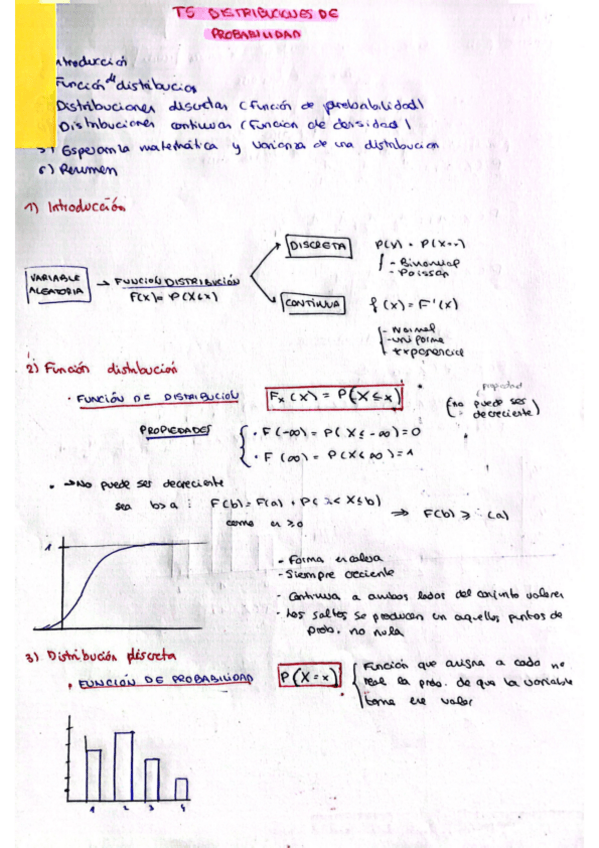 T5 DISTRIBUCIONES DE
PROBABILIDAD
ntroducción
Función de distribucion
Distribuciones discretas (Función de probabilidad)
Distribuciones continuas (Funcion de densidad)
5) Esperanza matemática y varianza de una distribución
6) Resumen
1) Introducción
VARIABLE
ALEATORIA
→ FUNCION DISTRIBUCIÓN
F(X)= P(X≤x)
DISCRETA
P(V) = P(X=
- Binomial
- Poisson
CONTINUA
f(x) = F'(x)
- Normal
- uniforme
- exponencial
2) Función distribución
· FUNCIÓN DE DISTRIBUCION
Fx(X) = P(X≤x)
propiedad
(no puede ser
decreciente)
PROPIEDADES
· F(-∞) = P(X≤-∞)=0
· F(∞) = P(X≤∞)=1
· →No puede ser decreciente
sea b>a : F(b)= F(a) + P( <X≤b)
como es ≥0
⇒ F(b) ≥ (a)
1
- Forma
- Siempre creciente
- Continua a ambos lados del conjunto valores
- Los saltos se producen en aquellos puntos de
prob. no nula
3) Distribución discreta
· FUNCIÓN DE PROBABILIDAD
P(X=x)
Función que asigna a cada no
real la prob. de que la variable
tome ese valor
1 2 3 4